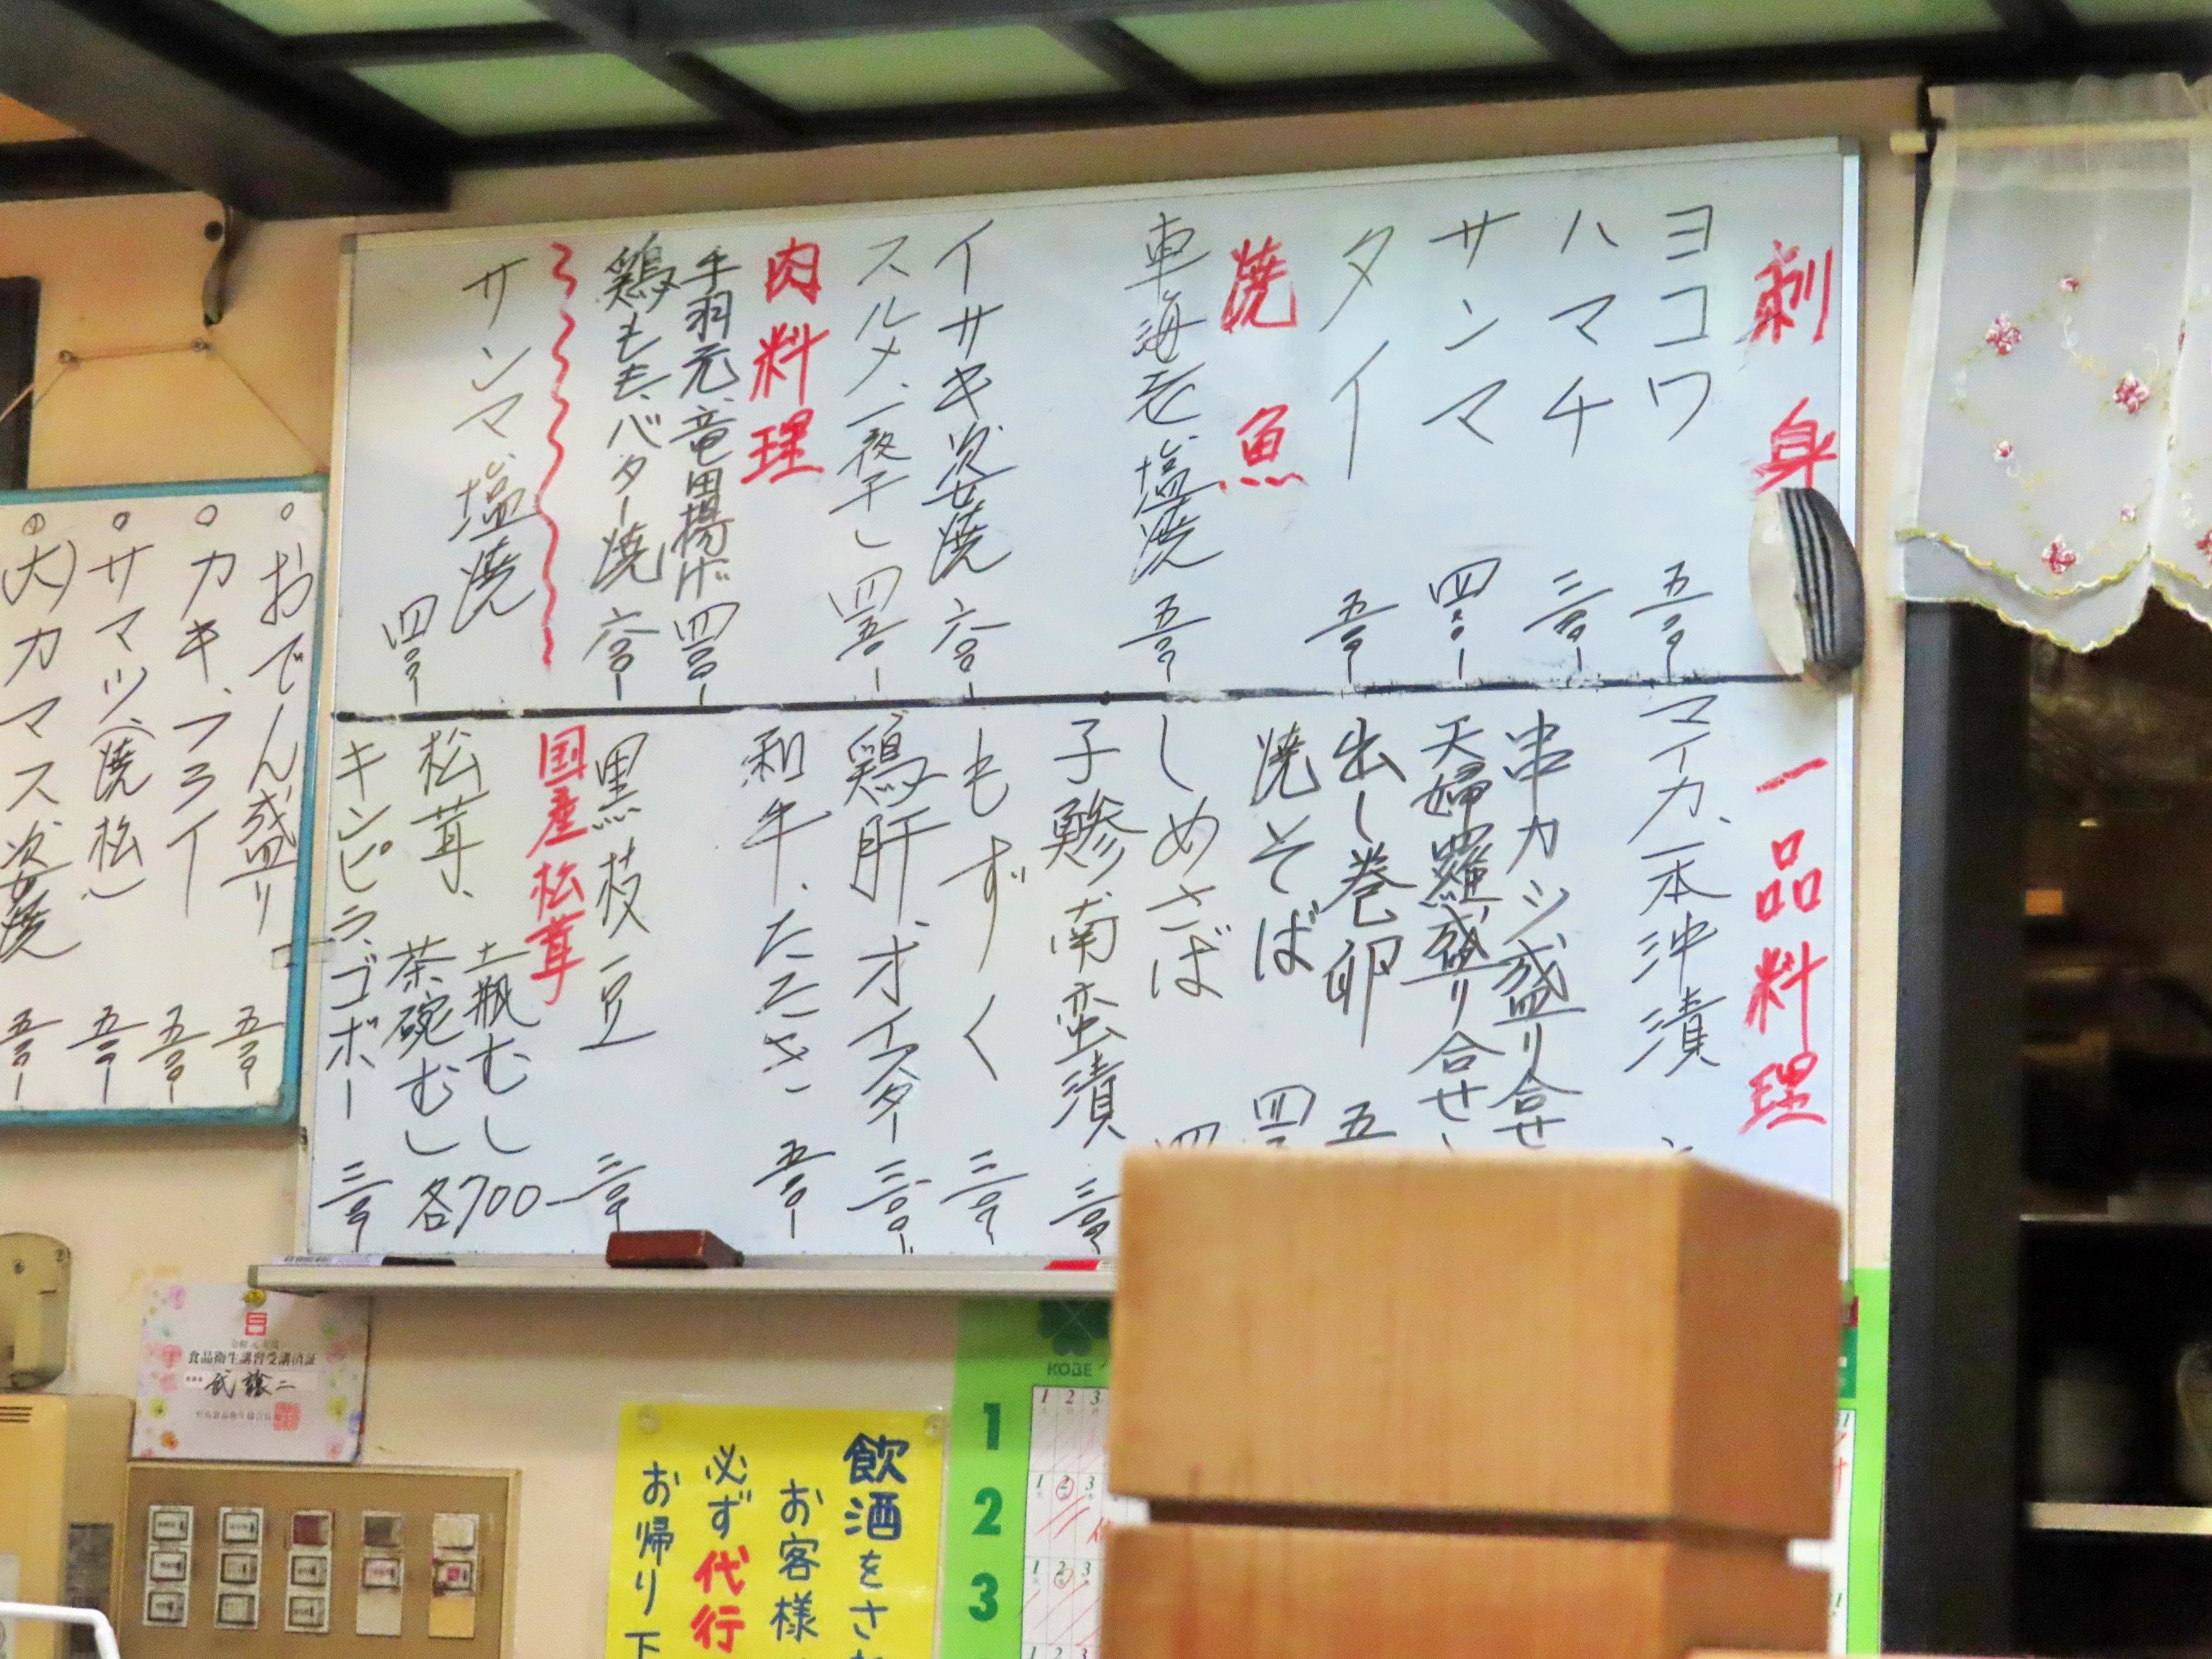 刺身
ヨコワ 五〇〇ー
ハマチ 三〇〇ー
サンマ 四〇〇ー
タイ 五〇〇ー
焼魚
車海老塩焼 五〇〇ー
イサキ姿焼 六〇〇ー
スルメ、一夜干し 四五〇ー
肉料理
手羽元、竜田揚げ 四〇〇ー
鶏もも、バター焼 六〇〇ー
サンマ、塩焼 四〇〇ー
一品料理
マイカ、一本沖漬
串カツ盛り合せ
天婦羅盛り合せ
出し巻卵 五
焼そば 四
しめさば 四
子鯵南蛮漬 三〇〇
もずく 三〇〇
鶏肝、オイスター 三〇〇ー
和牛、たたき 五〇〇ー
黒枝豆 三〇〇
国産松茸
松茸、土瓶むし
茶碗むし 各700ー
キンピラ、ゴボー 三〇〇
おでん盛り 五〇〇ー
カキ、フライ 五〇〇ー
サマツ(焼松) 五〇〇ー
(大)カマス姿焼 五〇〇ー
食品衛生講習受講済証
武 譲二
飲酒をさ
お客様
必ず代行
お帰り下
KOBE
1
1 2 3
2
1 2 3
3
1 2 3